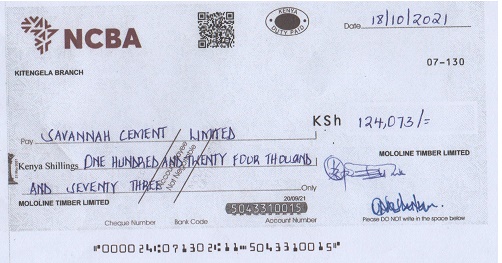 NCBA
KENYA
DUTY PAID
Date 18/10/2021
KITENGELA BRANCH
07-130
KSh 124,073/=
Pay SAVANNAH CEMENT LIMITED
Account Payee
Not Negotiable
Kenya Shillings ONE HUNDRED AND TWENTY FOUR THOUSAND
MOLOLINE TIMBER LIMITED
AND SEVENTY THREE Only
MOLOLINE TIMBER LIMITED
20/09/21
5043310015
Cheque Number Bank Code Account Number
Please DO NOT write in the space below
"000024⑈07130 2⑆11⑉5043310015"